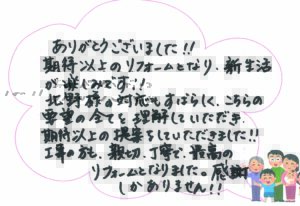 ありがとうございました!!
期待以上のリフォームとなり、新生活
が楽しみです!!
北野様の対応もすばらしく、こちらの
要望の全てを理解していただき、
期待以上の提案をしていただきました!!
工事の方も、親切、丁寧で、最高の
リフォームとなりました。感謝
しかありません!!